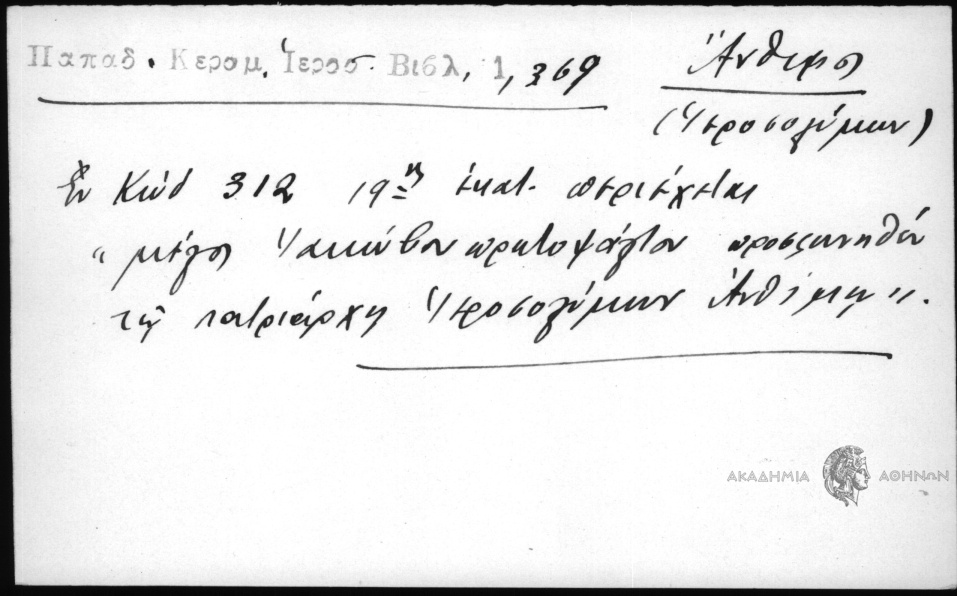 Παπαδ. Κεραμ. Ἱεροσ. Βιβλ. 1, 369
Ἄνθιμος
(Ἱεροσολύμων)
Ἐν Κώδ 312 19ης ἑκατ. περιέχεται
"μέλος Ἰακώβου πρωτοψάλτου προσφωνηθὲν
τῷ πατριάρχῃ Ἱεροσολύμων Ἀνθίμῳ".
ΑΚΑΔΗΜΙΑ ΑΘΗΝΩΝ